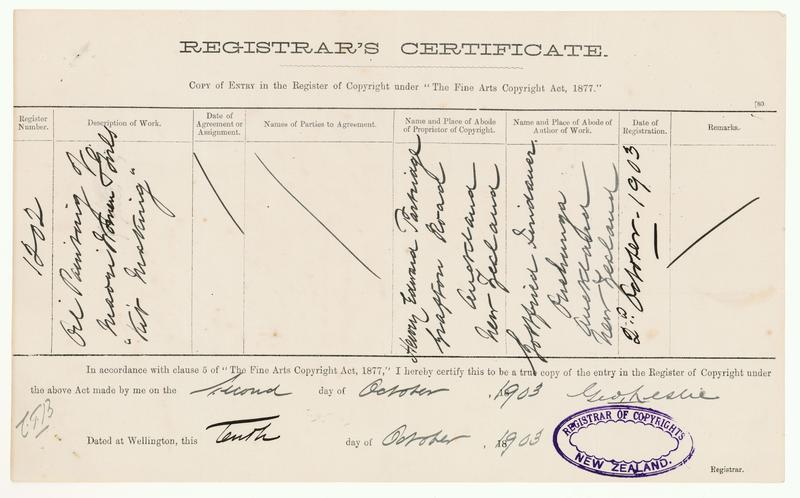 REGISTRAR'S CERTIFICATE.
COPY OF ENTRY in the Register of Copyright under "The Fine Arts Copyright Act, 1877."
Register Number.
Description of Work.
Date of Agreement or Assignment.
Names of Parties to Agreement.
Name and Place of Abode of Proprietor of Copyright.
Name and Place of Abode of Author of Work.
Date of Registration.
Remarks.
1202
Oil Painting of
Maori Women & Girls
"Kit Making"
Henry Edward Partridge
Grafton Road
Auckland
New Zealand
Gottfried Lindauer.
Onehunga
Auckland
New Zealand
2nd October - 1903
In accordance with clause 5 of "The Fine Arts Copyright Act, 1877," I hereby certify this to be a true copy of the entry in the Register of Copyright under
the above Act made by me on the Second day of October 1903 Geo. Leslie
Dated at Wellington, this Tenth day of October 1903
REGISTRAR OF COPYRIGHTS
NEW ZEALAND.
Registrar.